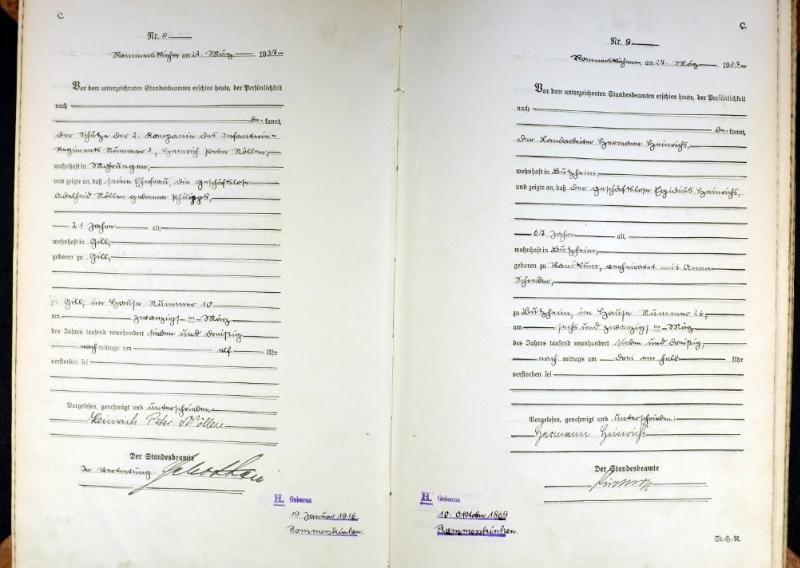 C.
Nr. 8
Rommerskirchen am 22. März 1937
Vor dem unterzeichneten Standesbeamten erschien heute, der Persönlichkeit
nach
be- kannt,
der Schütze der 2. Kompanie des Infanterie-
Regiments Nummer Heinrich Peter Nöllen,
wohnhaft in
und zeigte an, daß seine Ehefrau, die geschäftslose
Adelheid Nöllen geborene Philipps,
21 Jahre alt,
wohnhaft in Gill,
geboren zu Gill,
zu Gill, im Hause Nummer 10
am zwanzigsten März
des Jahres tausend neunhundert sieben und dreißig
nach mittags um elf Uhr
verstorben sei
Vorgelesen, genehmigt und unterschrieben
Heinrich Peter Nöllen
Der Standesbeamte
In Vertretung:
H. Geboren
19. Januar 1916
Rommerskirchen
C.
Nr. 9
Rommerskirchen am 27. März 1937
Vor dem unterzeichneten Standesbeamten erschien heute, der Persönlichkeit
nach
be- kannt,
der Landarbeiter Hermann Heinrichs,
wohnhaft in Butzheim,
und zeigte an, daß der geschäftslose Egidius Heinrichs,
67 Jahre alt
wohnhaft in Butzheim,
geboren zu verheiratet mit Anna
Schreiber,
zu Butzheim, im Hause Nummer 26,
am sechs und zwanzigsten März
des Jahres tausend neunhundert sieben und dreißig,
nach mittags um drei ein halb Uhr
verstorben sei
Vorgelesen, genehmigt und unterschrieben:
Hermann Heinrichs
Der Standesbeamte
H. Geboren
10. Oktober 1869
Rommerskirchen
St.-H.-R.